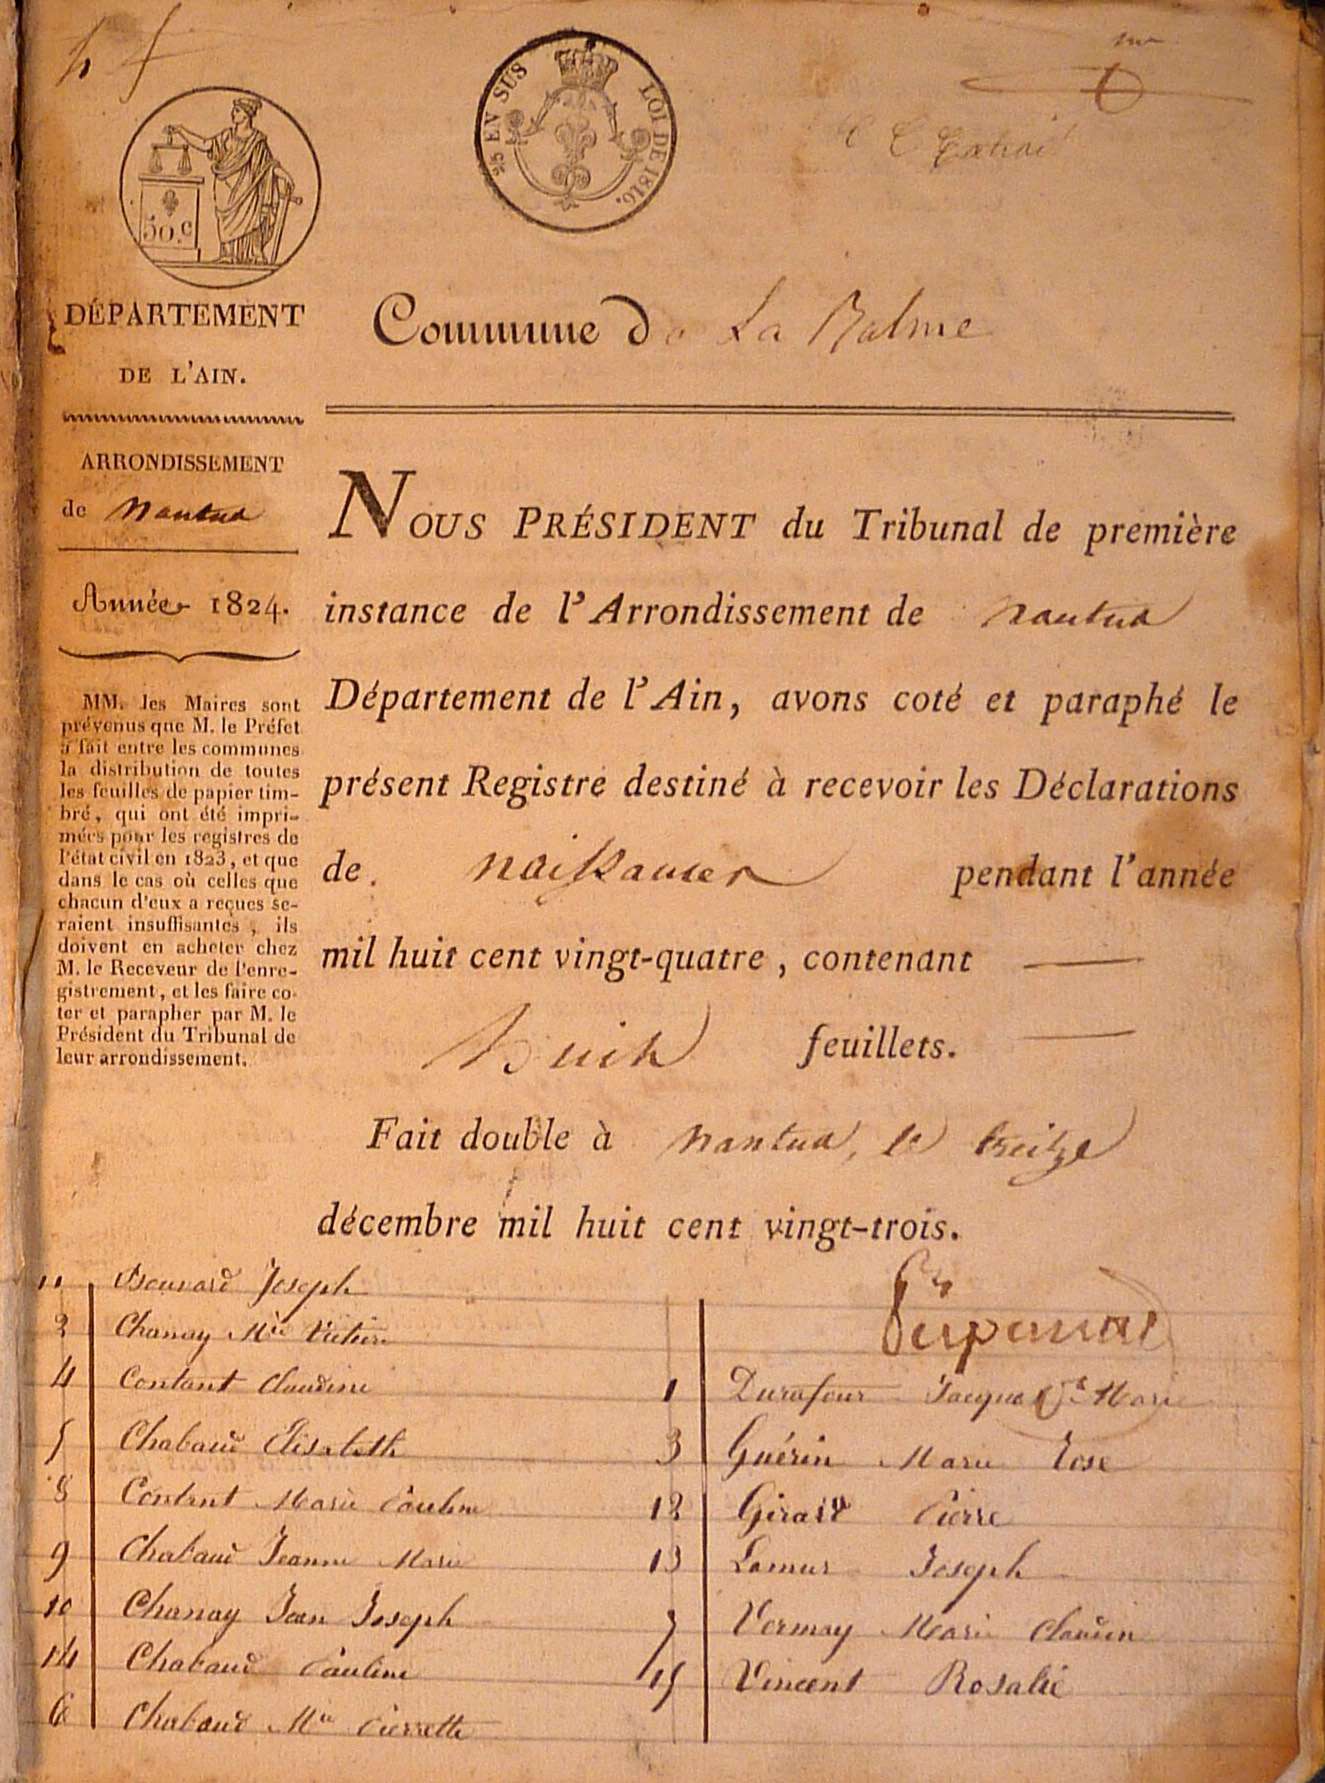 25 EN SUS LOI DE 1816.
50.C
DÉPARTEMENT
DE L'AIN.
ARRONDISSEMENT
de Nantua
Année 1824.
MM. les Maires sont
prévenus que M. le Préfet
a fait entre les communes
la distribution de toutes
les feuilles de papier tim-
bré, qui ont été impri-
mées pour les registres de
l'état civil en 1823, et que
dans le cas où celles que
chacun d'eux a reçues se-
raient insuffisantes, ils
doivent en acheter chez
M. le Receveur de l'enre-
gistrement, et les faire co-
ter et parapher par M. le
Président du Tribunal de
leur arrondissement.
Commune de La Balme
NOUS PRÉSIDENT du Tribunal de première
instance de l'Arrondissement de Nantua
Département de l'Ain, avons coté et paraphé le
présent Registre destiné à recevoir les Déclarations
de naissances pendant l'année
mil huit cent vingt-quatre, contenant
huit feuillets.
Fait double à Nantua, le treize
décembre mil huit cent vingt-trois.
11 Bonnard Joseph
2 Chanay Mie
4 Contant Claudine
5 Chabaud Elisabeth
8 Contant Marie Pauline
9 Chabaud Jeanne Marie
10 Chanay Jean Joseph
14 Chabaud Pauline
6 Chabaud Mie Pierrette
1 Durafour Jacques Marie
3 Guérin Marie Rose
12 Girard Pierre
13 Lamur Joseph
7 Vermay Marie Claudin
15 Vincent Rosalie